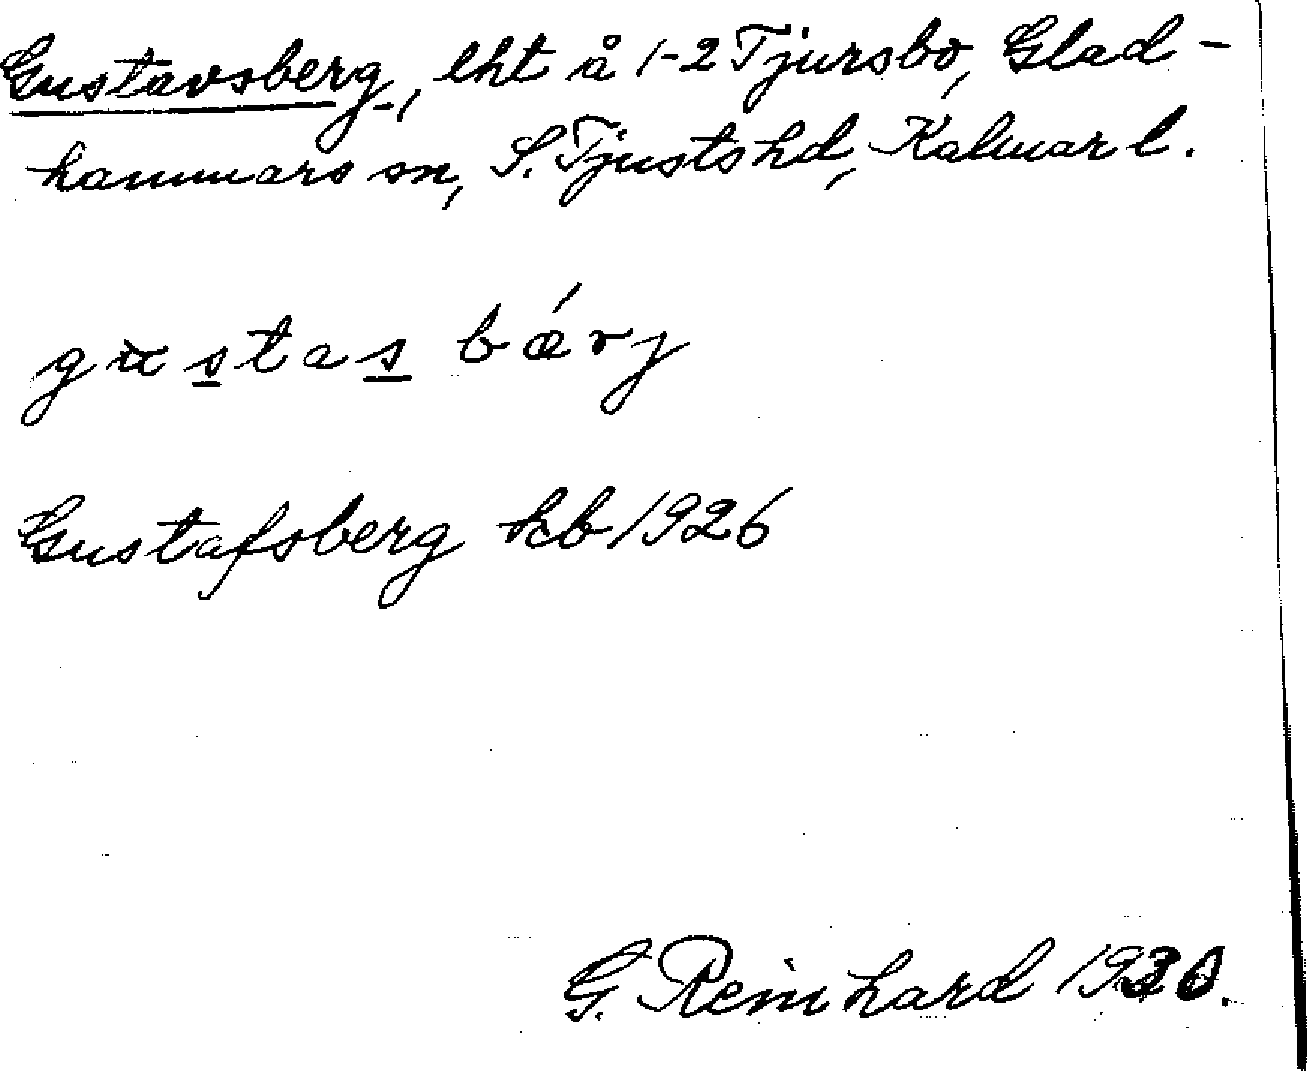 Gustavsberg, lht å 1-2 Tjursbo, Glad-
hammars sn, S. Tjusts hd, Kalmar l.
gustas bǽrj
Gustafsberg kb 1926
G. Reinhard 1930.